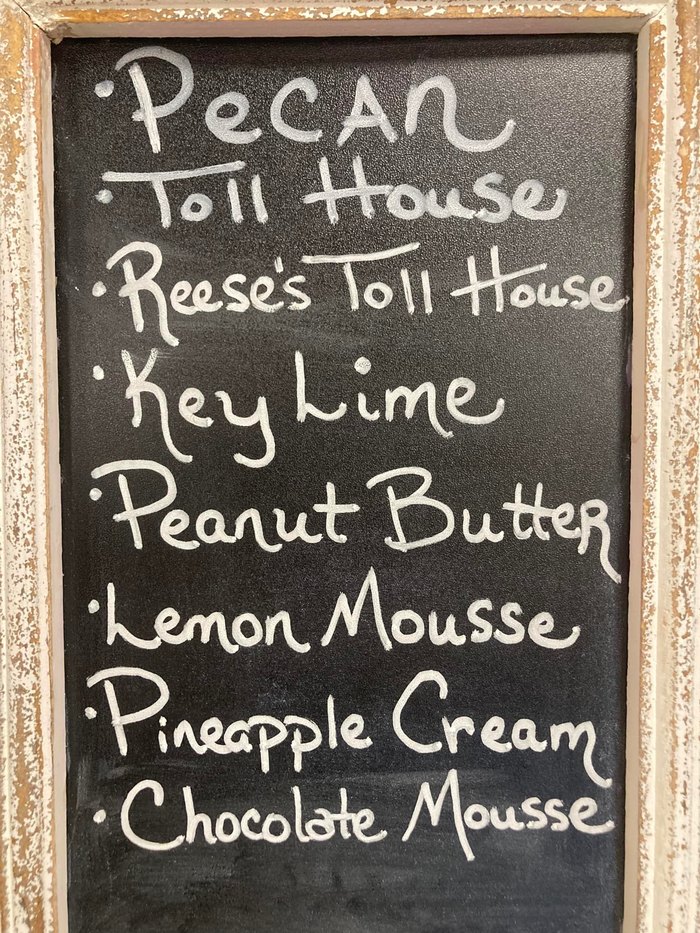 • Pecan
• Toll House
• Reese's Toll House
• Key Lime
• Peanut Butter
• Lemon Mousse
• Pineapple Cream
• Chocolate Mousse